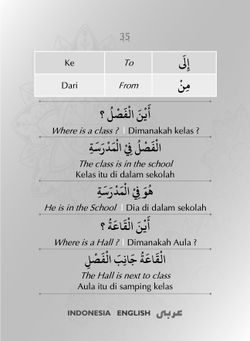 35
Ke To إِلَى
Dari From مِنْ
أَيْنَ الْفَصْلُ ؟
Where is a class ? | Dimanakah kelas ?
الْفَصْلُ فِي الْمَدْرَسَةِ
The class is in the school
Kelas itu di dalam sekolah
هُوَ فِي الْمَدْرَسَةِ
He is in the School | Dia di dalam sekolah
أَيْنَ الْقَاعَةُ ؟
Where is a Hall ? | Dimanakah Aula ?
الْقَاعَةُ جَانِبَ الْفَصْلِ
The Hall is next to class
Aula itu di samping kelas
INDONESIA ENGLISH عربى